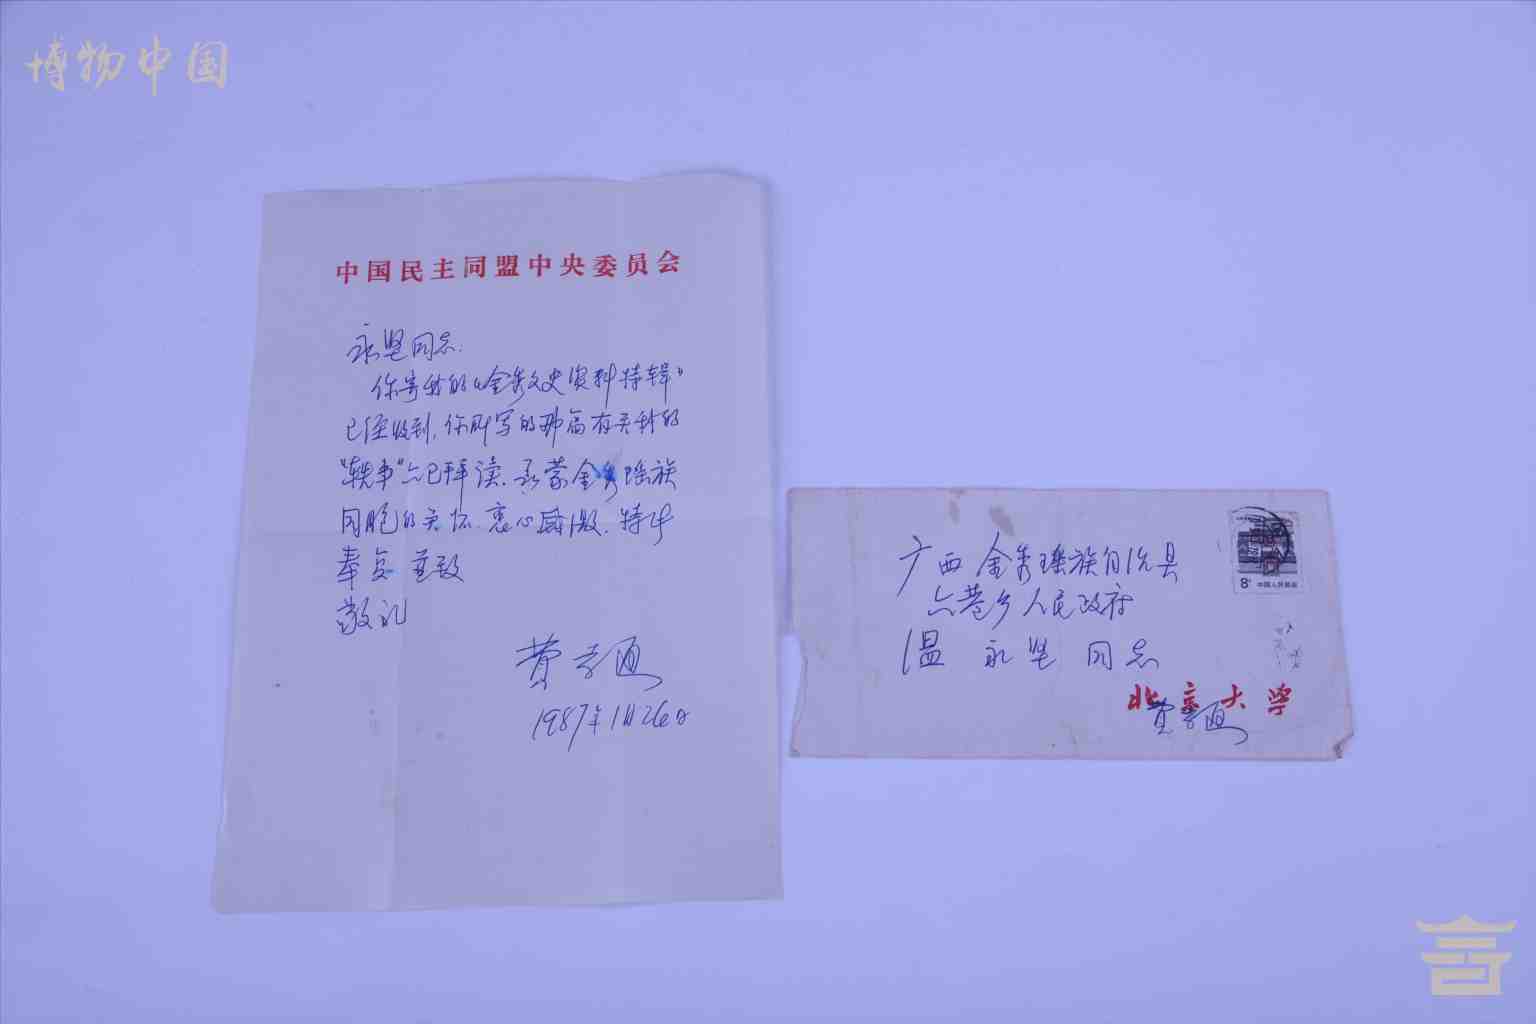 博物中国
中国民主同盟中央委员会
永坚同志：
你寄我的《金秀文史资料特辑》
已经收到，你所写的那篇有关我的
“轶事”亦已拜读，承蒙金秀瑶族
同胞的关怀，衷心感激，特此
奉复 并致
敬礼
费孝通
1987年1月26日
8分 中国人民邮政
广西金秀瑶族自治县
六巷乡人民政府
温永坚同志
北京大学
费孝通